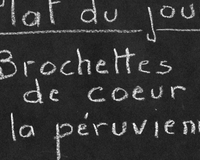 Plat du jou
Brochettes
de coeur
la péruvien